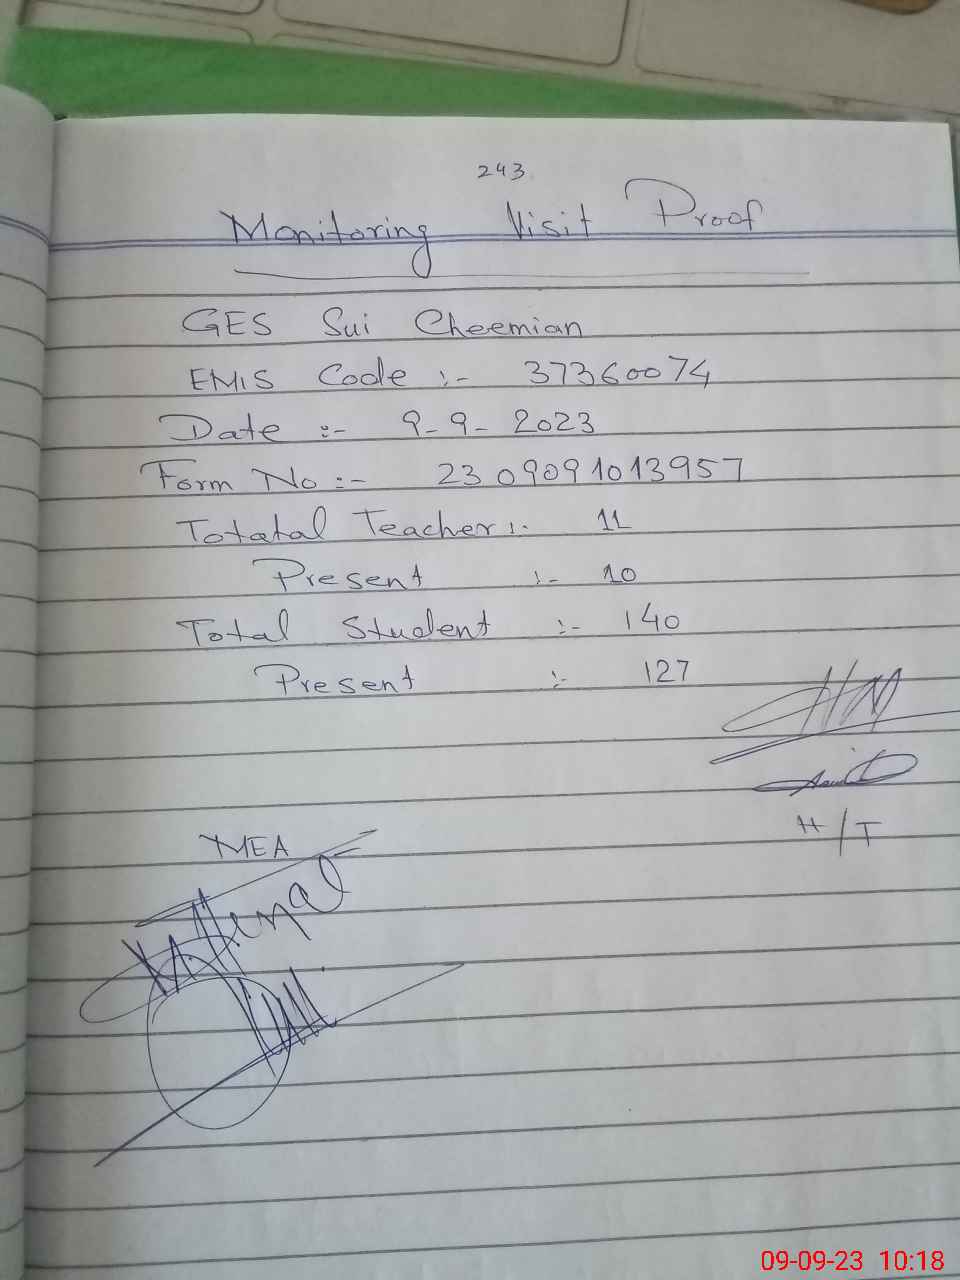 243
Monitoring Visit Proof
GES Sui Cheemian
EMIS Code :- 37360074
Date :- 9-9-2023
Form No :- 2309091013957
Totatal Teacher :- 11
Present :- 10
Total Student :- 140
Present :- 127
H/T
MEA
09-09-23 10:18